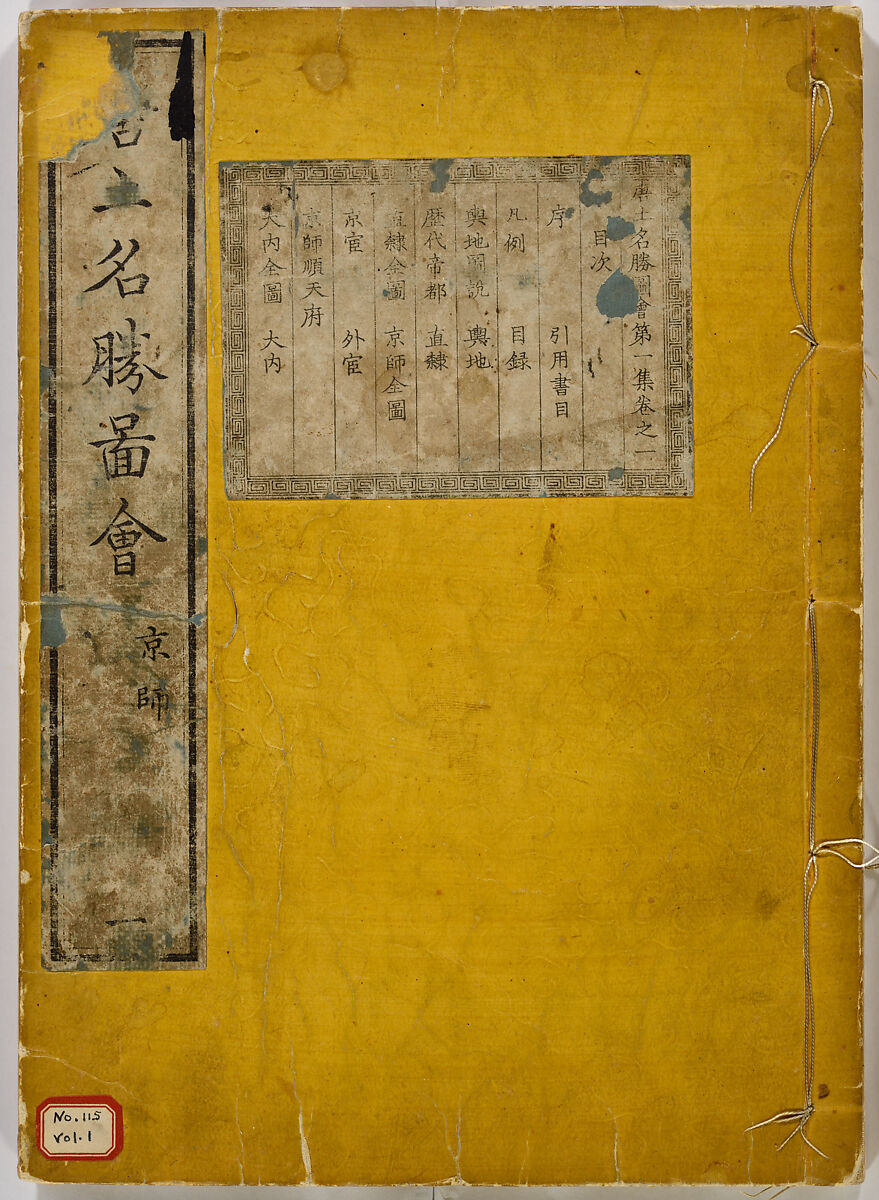 土名勝圖會
京師
一
唐土名勝圖會第一集卷之一
目次
序 引用書目
凡例 目録
輿地圖説 輿地
歴代帝都 直隷
直隷全圖 京師全圖
京宦 外宦
京師順天府
大内全圖 大内
No. 115
vol. 1